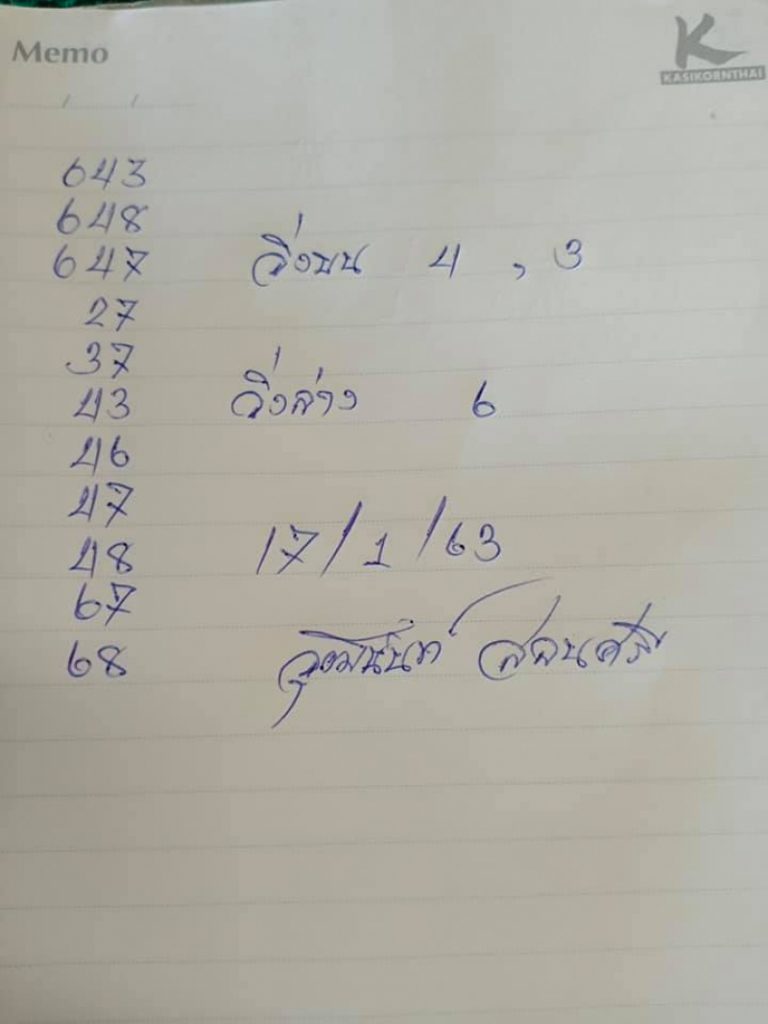 Memo
KASIKORNTHAI
643
648
647 วิ่งบน 4 , 3
27
37
43 วิ่งล่าง 6
46
47
48 17/1/63
67
68